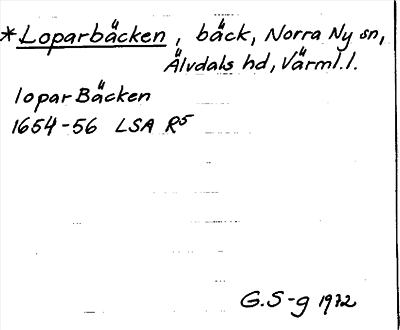 *Loparbäcken, bäck, Norra Ny sn,
Älvdals hd, Värml.l.
lopar Bäcken
1654-56 LSA R5
G.S-g 1972